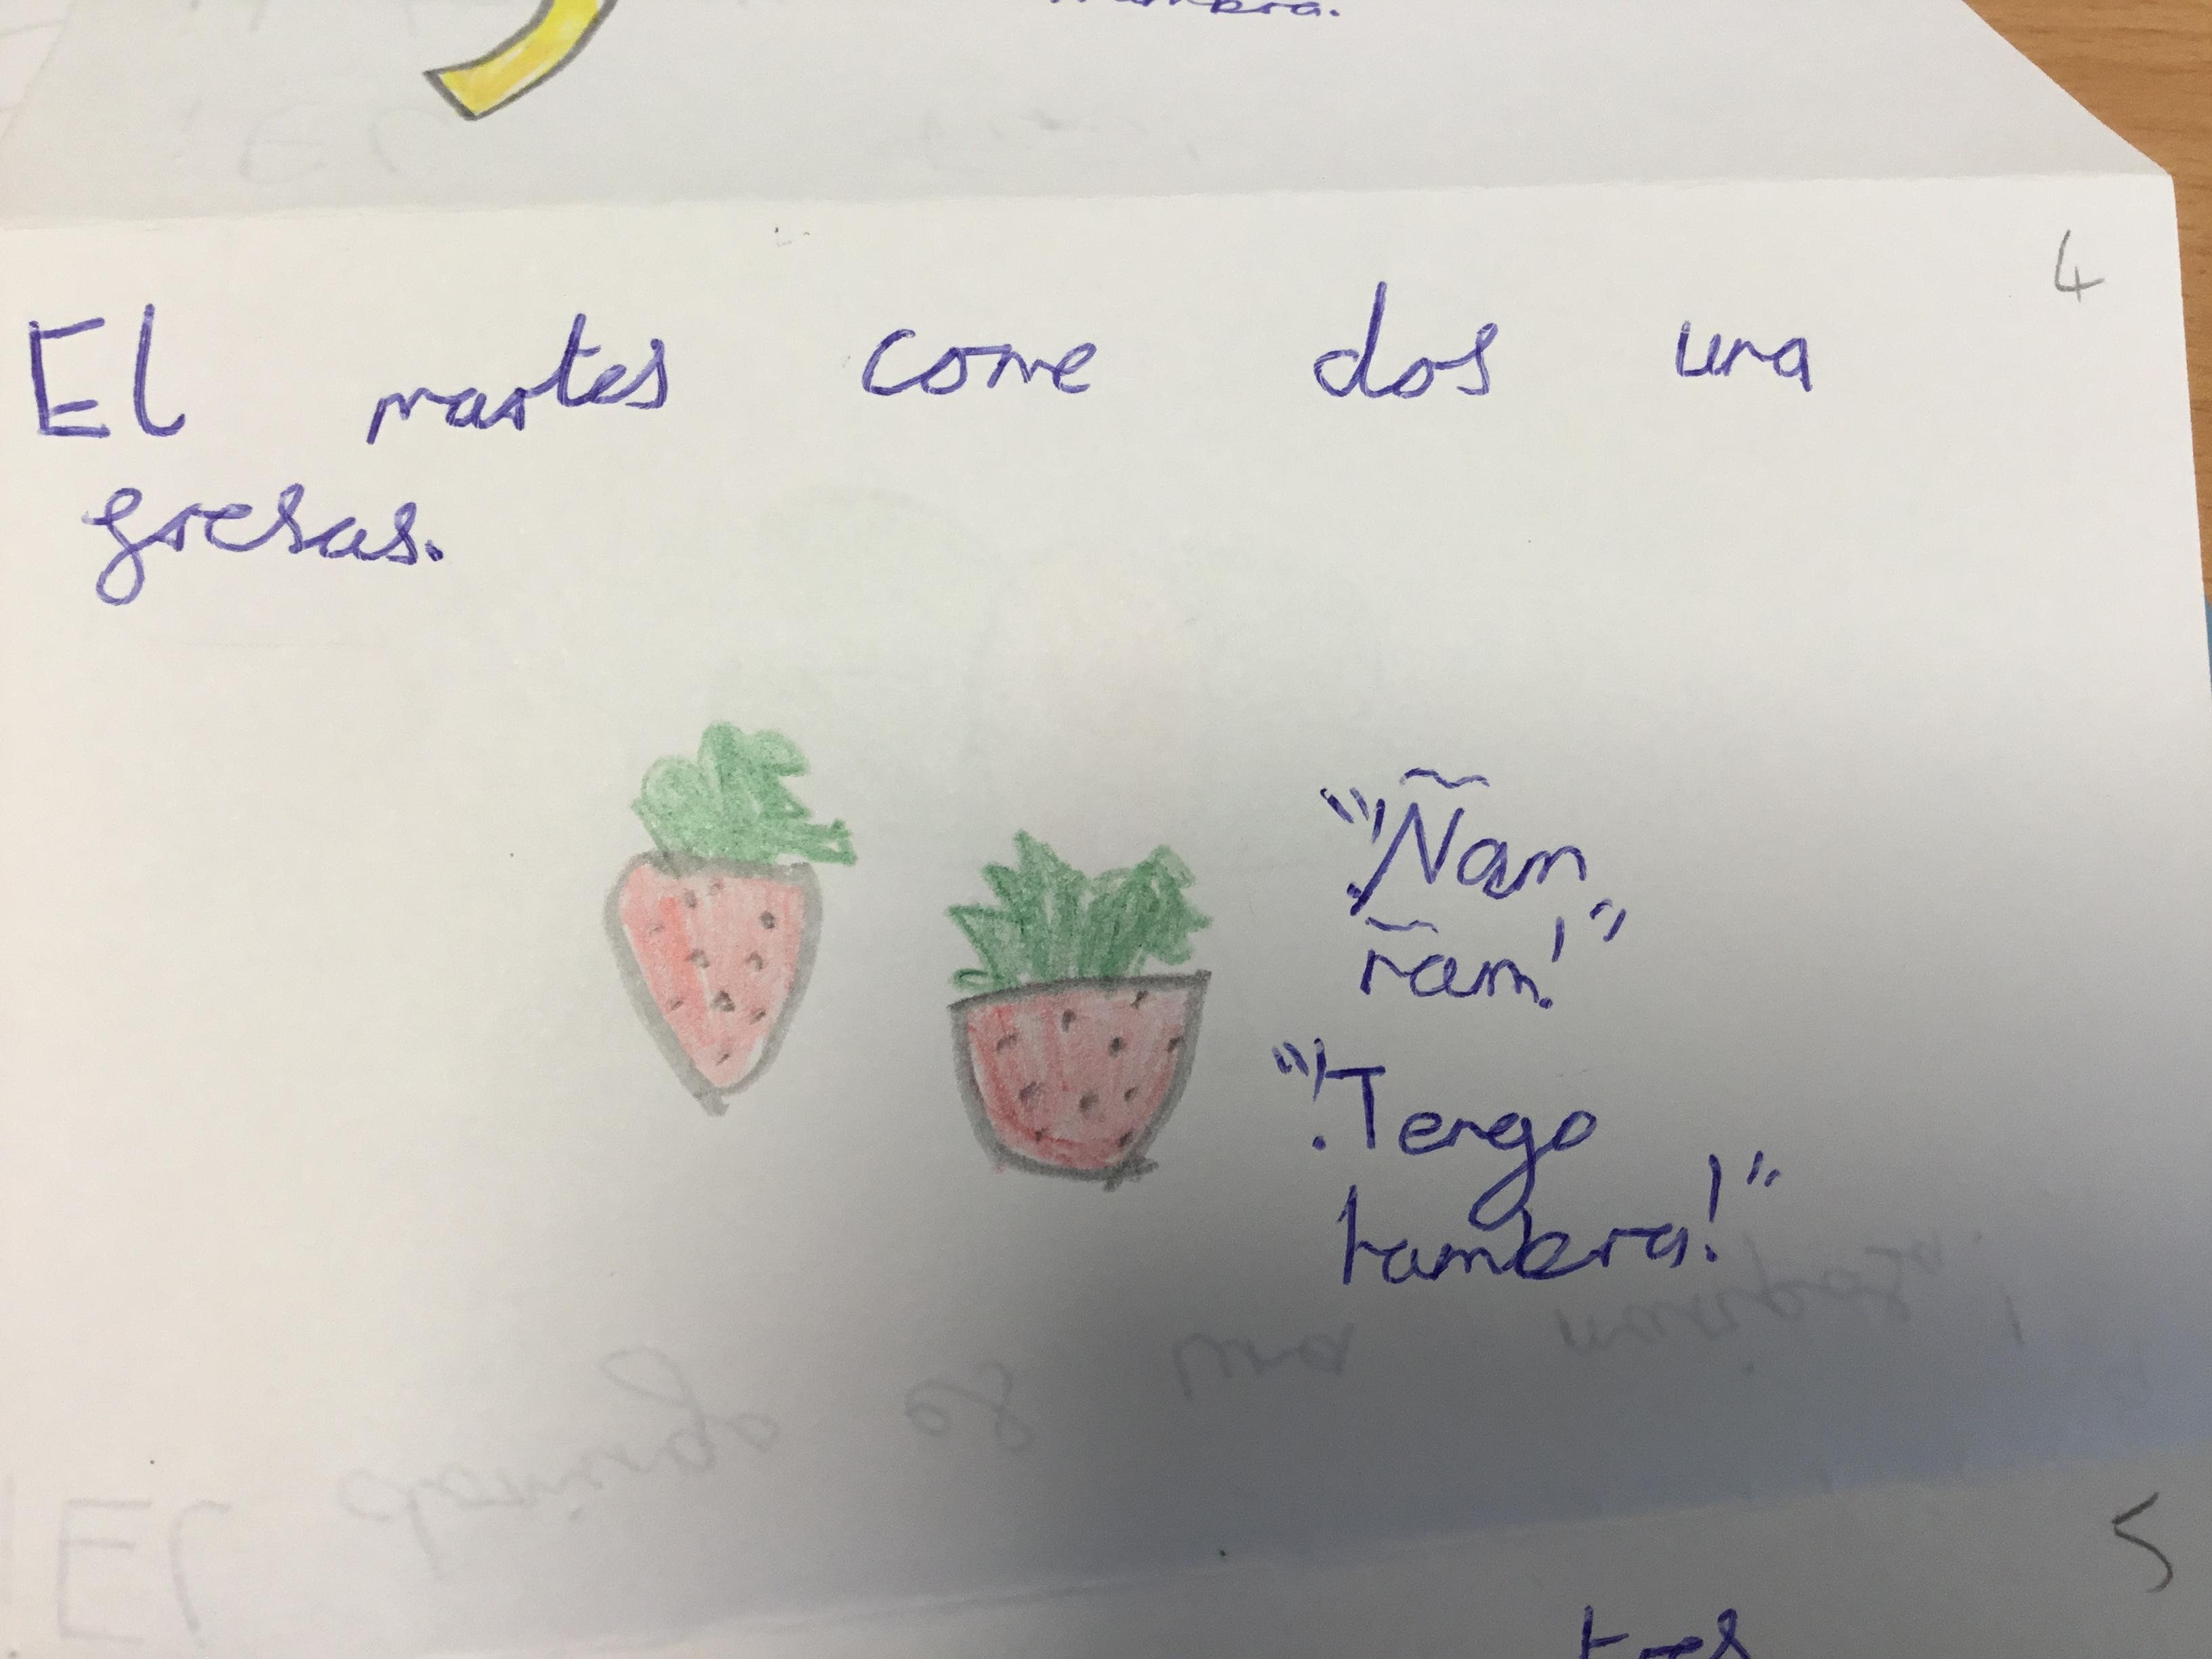 4
El martes come dos una
fresas.
"¡Ñam
ñam!"
"¡Tengo
hambra!"
5
tres